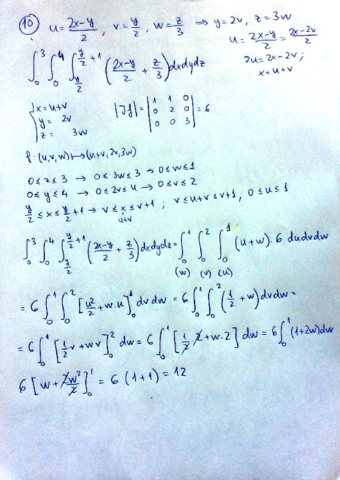 10) u = (2x-y)/2, v = y/2, w = z/3 ⇒ y = 2v, z = 3w
u = (2x-y)/2 = (2x-2v)/2
2u = 2x-2v;
x = u+v
∫₀³ ∫₀⁴ ∫_{y/2}^{y/2+1} ((2x-y)/2 + z/3) dxdydz
{ x = u+v
y = 2v
z = 3w
|Jf| = | 1 1 0 | 0 2 0 | 0 0 3 | = 6
f: (u,v,w) ↦ (u+v, 2v, 3w)
0 ≤ z ≤ 3 → 0 ≤ 3w ≤ 3 → 0 ≤ w ≤ 1
0 ≤ y ≤ 4 → 0 ≤ 2v ≤ 4 → 0 ≤ v ≤ 2
y/2 ≤ x ≤ y/2 + 1 → v ≤ x ≤ v+1 ; v ≤ u+v ≤ v+1, 0 ≤ u ≤ 1
u+v
∫₀³ ∫₀⁴ ∫_{y/2}^{y/2+1} ((2x-y)/2 + z/3) dxdydz = ∫₀¹ ∫₀² ∫₀¹ (u+w) · 6 dudvdw
(w) (v) (u)
= 6 ∫₀¹ ∫₀² [u²/2 + w·u]₀¹ dvdw = 6 ∫₀¹ ∫₀² (1/2 + w) dvdw =
= 6 ∫₀¹ [1/2 v + wv]₀² dw = 6 ∫₀¹ [1/2 2 + w·2] dw = 6 ∫₀¹ (1+2w) dw
6 [w + 2w²/2]₀¹ = 6 (1+1) = 12